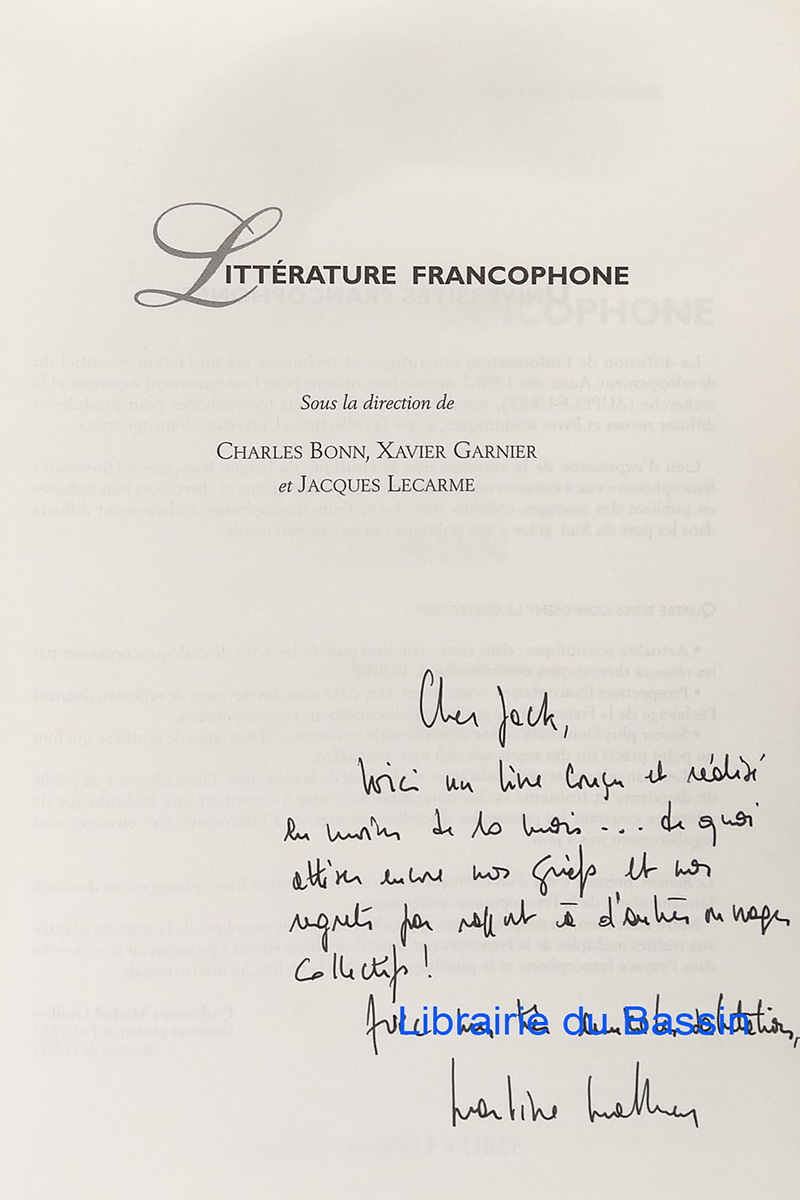 LITTÉRATURE FRANCOPHONE
Sous la direction de
CHARLES BONN, XAVIER GARNIER
et JACQUES LECARME
Cher Jack,
Voici un livre conçu et réalisé
en moins de 10 mois... de quoi
attiser encore nos griefs et nos
regrets par rapport à d'autres ouvrages
collectifs !
Avec mes très
Librairie du Bassin
Martine Mathieu